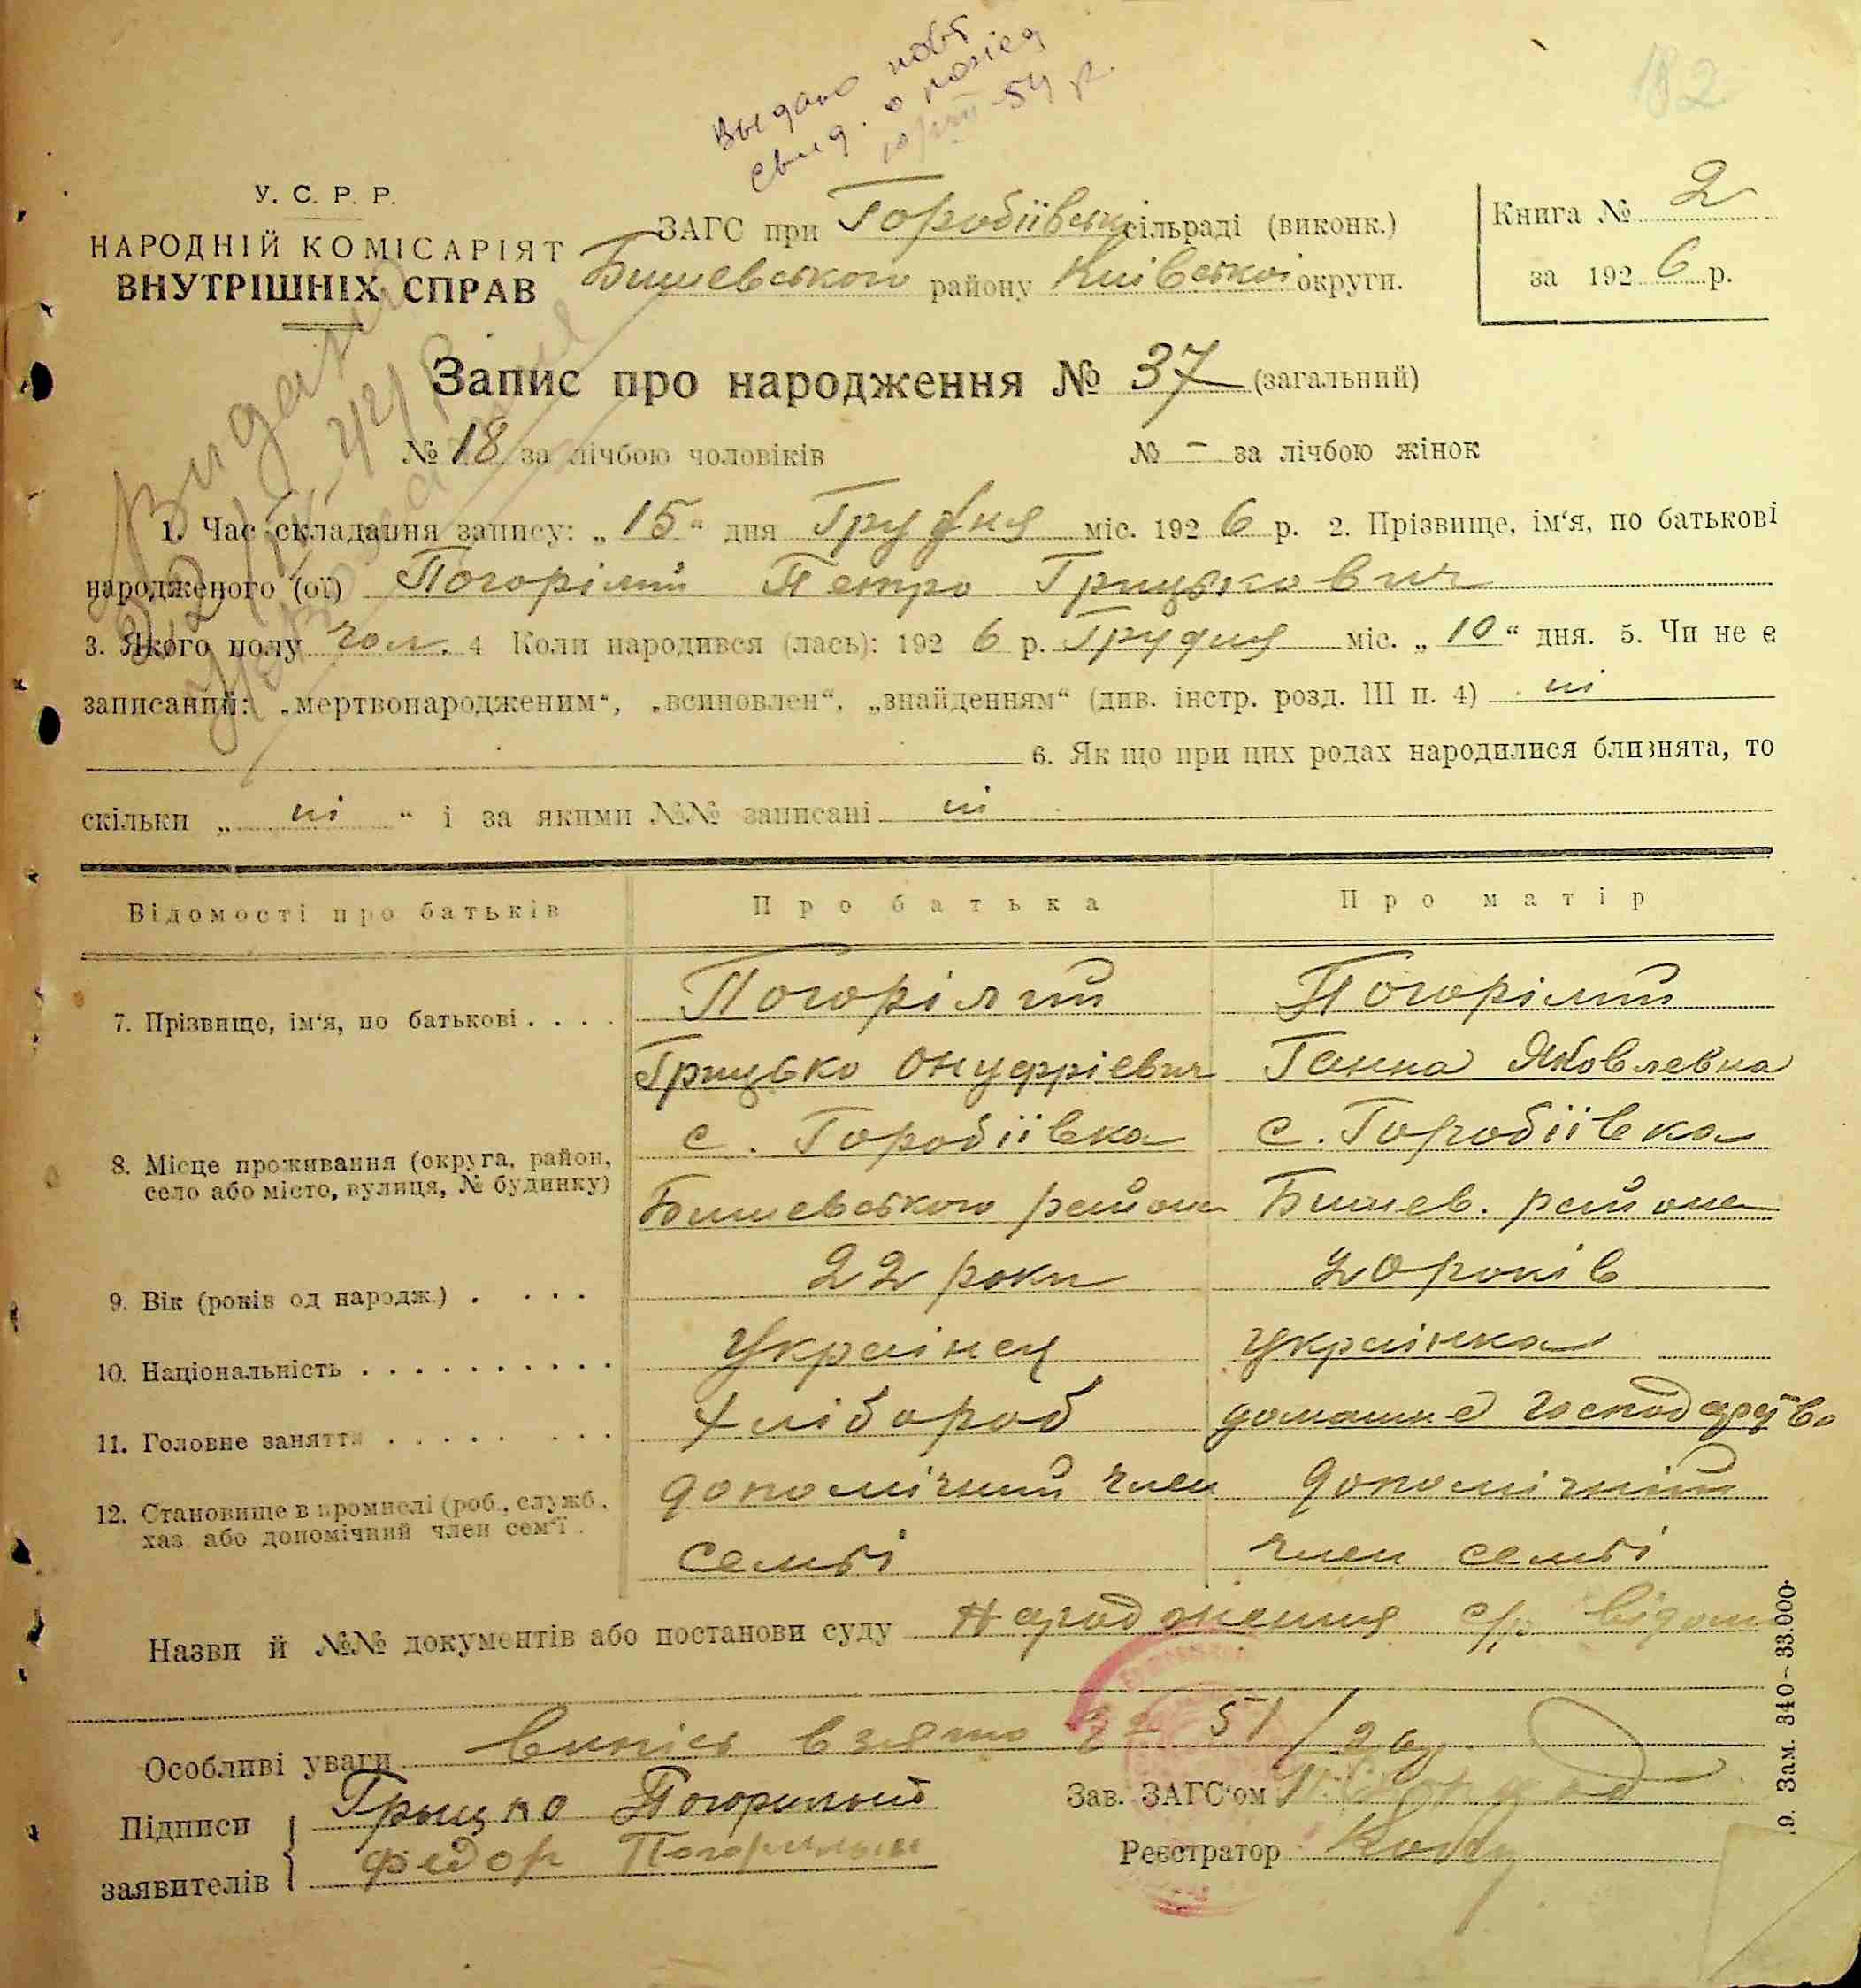 Выдано
свид. о
54 р.
182
У. С. Р. Р.
НАРОДНІЙ КОМІСАРІЯТ
ВНУТРІШНІХ СПРАВ
ЗАГС при Горобіївськ сільраді (виконк.)
Бишевського району Київської округи.
Книга № 2
за 1926 р.
Видано
Запис про народження № 37 (загальний)
№ 18 за лічбою чоловіків № – за лічбою жінок
1. Час складання запису: „15“ дня Грудня міс. 1926 р. 2. Прізвище, ім‘я, по батькові
народженого (ої) Погорілий Петро Грицькович
3. Якого полу чол. 4 Коли народився (лась): 1926 р. Грудня міс. „10“ дня. 5. Чи не є
записаний: „мертвонародженим“, „всиновлен“, „знайденням“ (див. інстр. розд. III п. 4) ні
6. Як що при цих родах народилися близнята, то
скільки „ ні “ і за якими №№ записані ні
Відомості про батьків Про батька Про матір
7. Прізвище, ім‘я, по батькові . . . . Погорілий Погорілий
Грицько Онуфріевич Ганна Яковлевна
с. Горобіївка с. Горобіївка
8. Місце проживання (округа, район,
село або місто, вулиця, № будинку)
Бишевського района Бишев. района
9. Вік (років од народж.) . . . . 22 роки 20 років
10. Національність . . . . . . . . . . Українец Українка
11. Головне заняття . . . . . . . . Хлібороб домашнє господарство
12. Становище в промислі (роб., служб.,
хаз. або допомічний член сем‘ї .
допомічний член допомічний
семьі член семьі
Назви й №№ документів або постанови суду Народження с/р відом
Особливі уваги випись взято за 51/26
Підписи Грицко Погорилый Зав. ЗАГС‘ом
заявителів Федор Погорилый Реєстратор
9. Зам. 340–33.000.